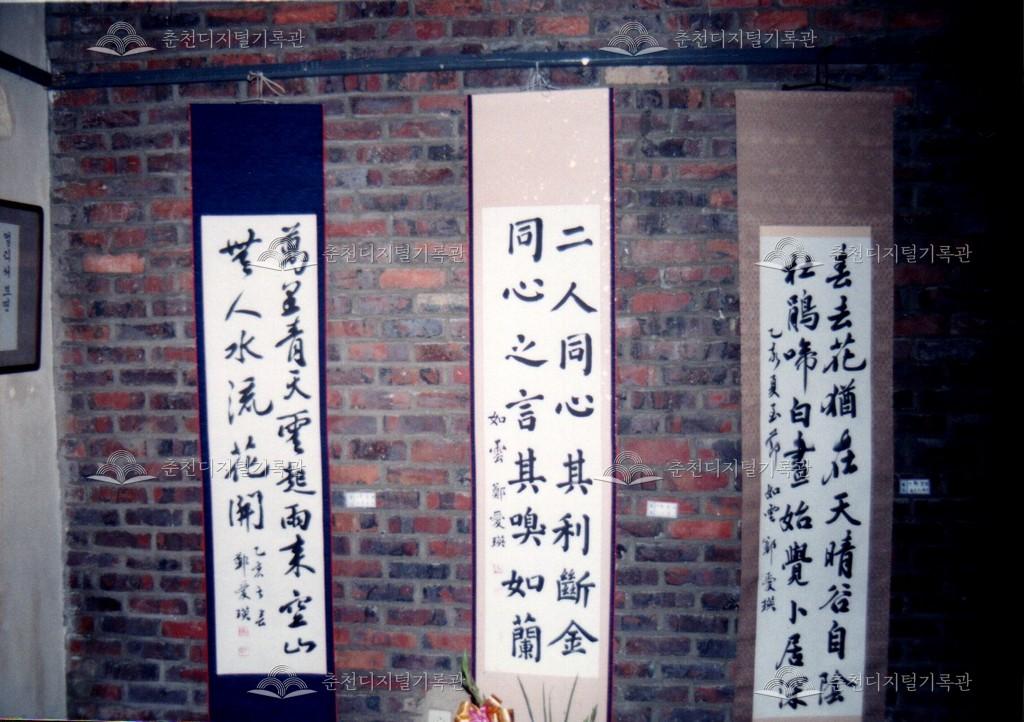 春去花猶在天晴谷自陰
杜鵑啼白晝始覺卜居深
乙亥夏 如雲 鄭愛瑛
二人同心其利斷金
同心之言其嗅如蘭
如雲 鄭愛瑛
萬里青天雲起雨來空山
無人水流花開
乙亥
鄭愛瑛
춘천디지털기록관
춘천디지털기록관
춘천디지털기록관
춘천디지털기록관
춘천디지털기록관
춘천디지털기록관
춘천디지털기록관
춘천디지털기록관